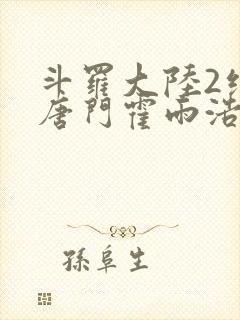 斗羅大陸2
唐門霍雨浩
孫阜生